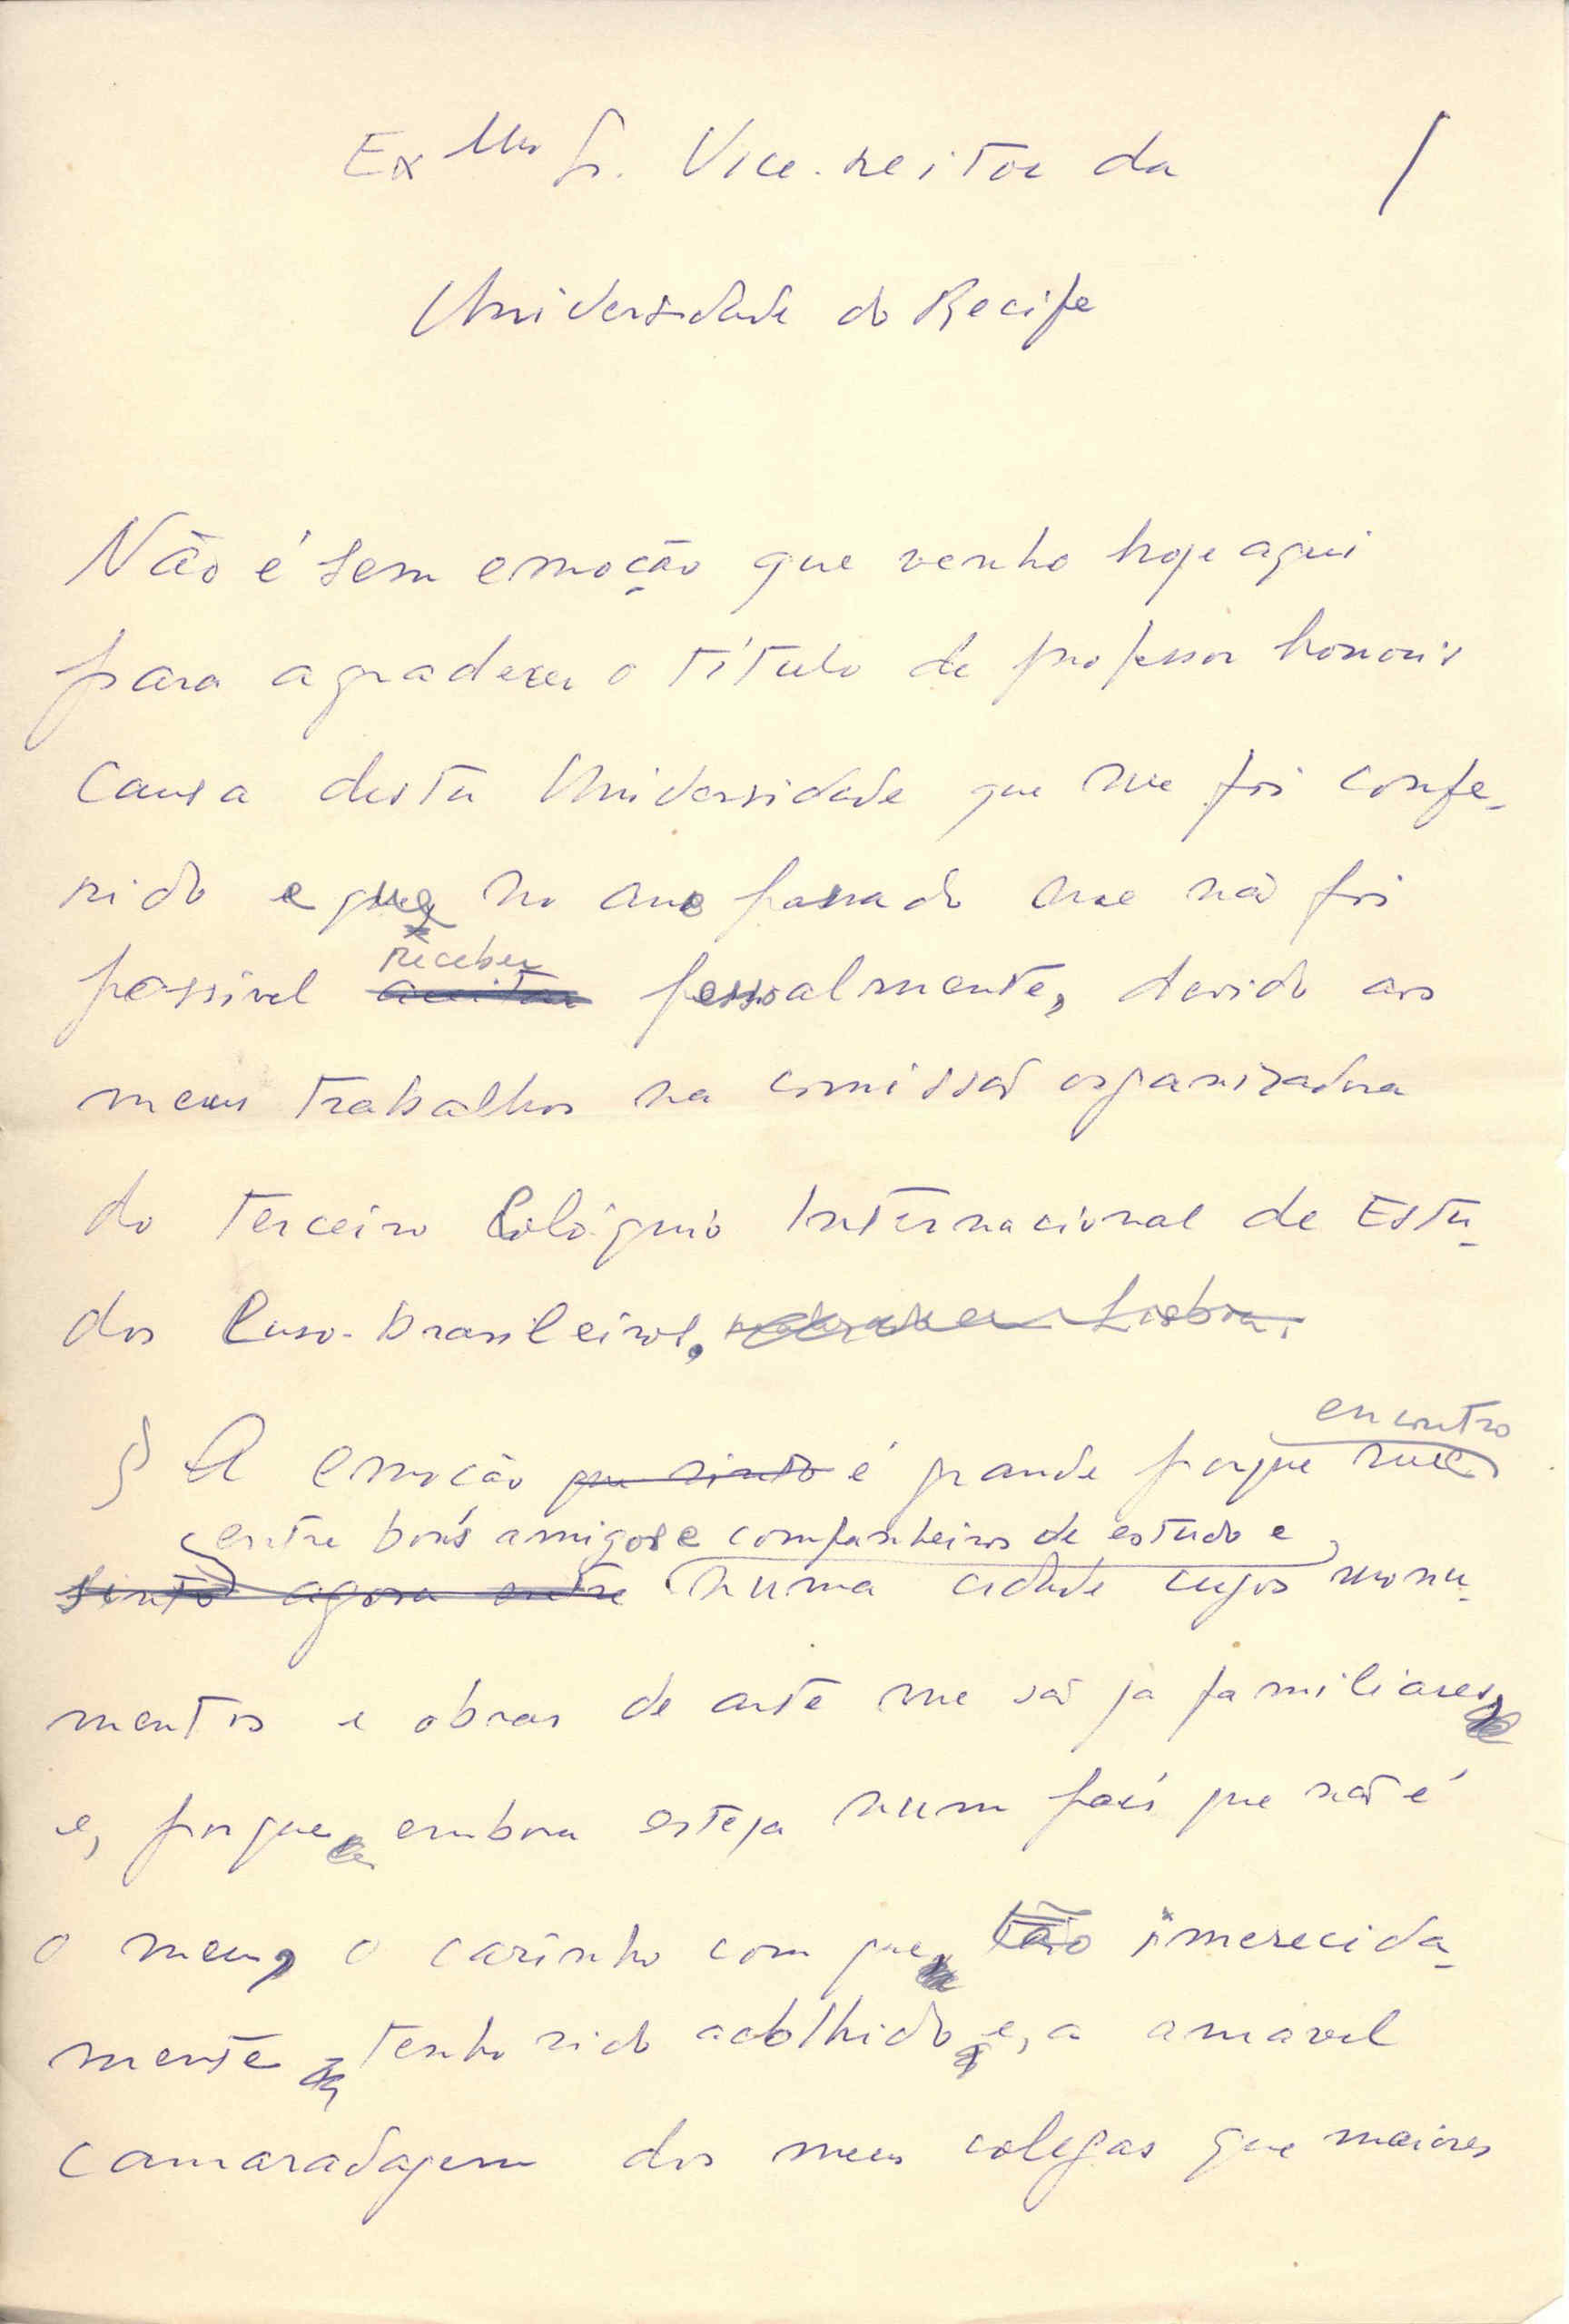 Exmo Sr. Vice-reitor da
/
Universidade do Recife
Não é sem emoção que venho hoje aqui
para agradecer o título de professor honoris
causa desta Universidade que me foi confe-
rido e que no ano passado me não foi
receber
possivel aceitar pessoalmente, devido aos
meus trabalhos na comissão organizadora
do terceiro Colóquio Internacional de Estu-
dos Luso-brasileiros, Lisboa.
encontro
§ A emoção que sinto é grande porque me
entre bons amigos e companheiros de estudo e
sinto agora entre numa cidade cujos monu-
mentos e obras de arte me são já familiares,
e, porque embora esteja num país que não é
o meu, o carinho com que, tão imerecida-
mente tenho sido acolhido e, a amavel
camaradagem dos meus colegas que maiores